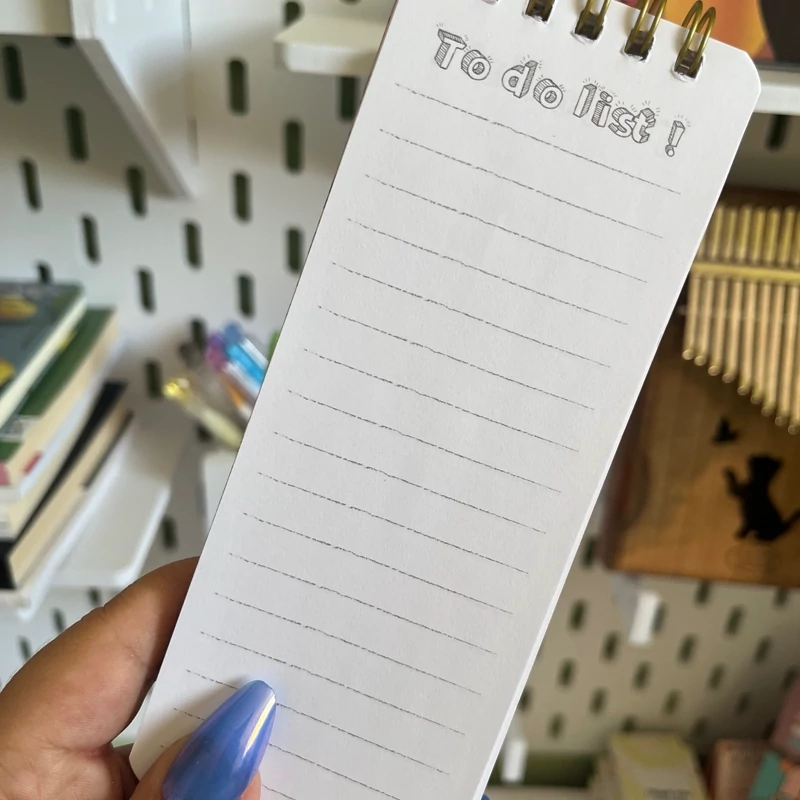 To do list !